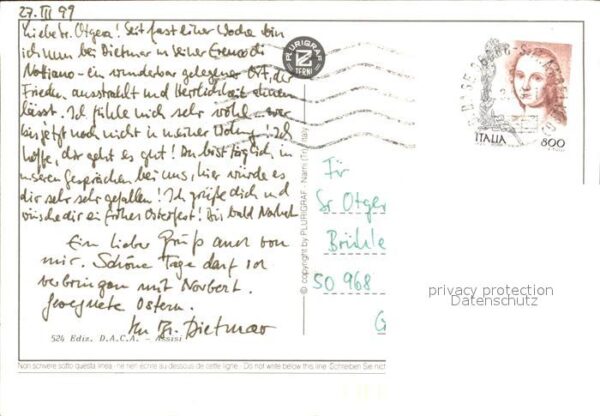 27. III 99
Liebe Sr. Otgera! Seit fast einer Woche bin
ich nun bei Dietmar in seiner Eremo di
Notiano - ein wunderbar gelegener Ort, der
Frieden ausstrahlt und Herrlichkeit ahnen
lässt. Ich fühle mich sehr wohl - war
bis jetzt noch nicht in meiner Ich
hoffe, dir geht es gut! Du bist täglich in
unseren Gesprächen bei uns, hier würde es
dir sehr sehr gefallen! Ich grüße dich und
wünsche dir ein frohes Osterfest! Bis bald Norbert
Ein lieber Gruß auch von
mir. Schöne Tage darf ich
verbringen mit Norbert.
Gesegnete Ostern.
Br. Dietmar
526 Ediz. D.A.C.A. - Assisi
Non scrivere sotto questa linea - ne rien écrire au-dessous de cette ligne - Do not write below this line - Schreiben Sie nicht
PLURIGRAF
TERNI
© copyright by PLURIGRAF - Narni (Tr) - Italy
ITALIA
800
Für
Sr Otger
Brühle
SO 968
G
privacy protection
Datenschutz